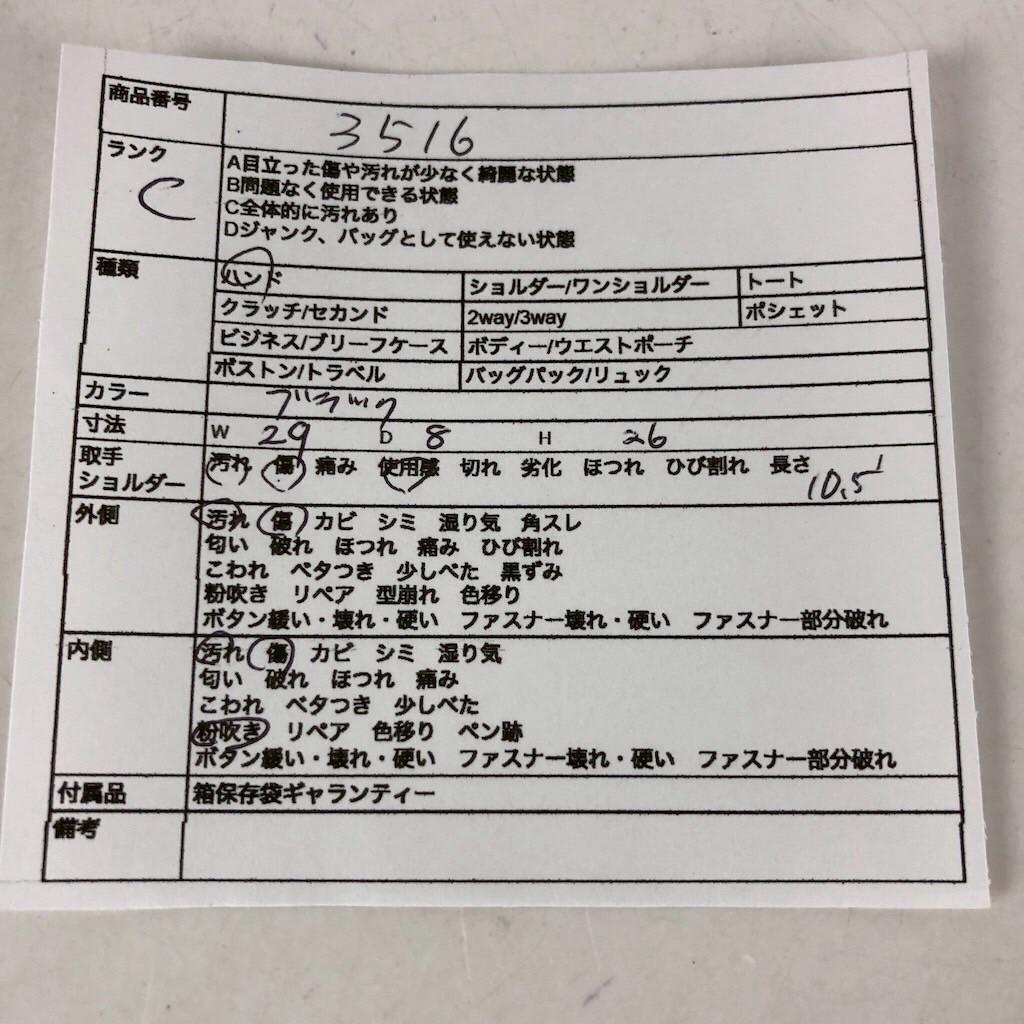 商品番号 3516
ランク C
A目立った傷や汚れが少なく綺麗な状態
B問題なく使用できる状態
C全体的に汚れあり
Dジャンク、バッグとして使えない状態
種類 ハンド ショルダー/ワンショルダー トート
クラッチ/セカンド 2way/3way ポシェット
ビジネス/ブリーフケース ボディー/ウエストポーチ
ボストン/トラベル バッグパック/リュック
カラー ブラック
寸法 W 29 D 8 H 26
取手 汚れ 傷 痛み 使用感 切れ 劣化 ほつれ ひび割れ 長さ
ショルダー 10.5
外側 汚れ 傷 カビ シミ 湿り気 角スレ
匂い 破れ ほつれ 痛み ひび割れ
こわれ ベタつき 少しべた 黒ずみ
粉吹き リペア 型崩れ 色移り
ボタン緩い・壊れ・硬い ファスナー壊れ・硬い ファスナー部分破れ
内側 汚れ 傷 カビ シミ 湿り気
匂い 破れ ほつれ 痛み
こわれ ベタつき 少しべた
粉吹き リペア 色移り ペン跡
ボタン緩い・壊れ・硬い ファスナー壊れ・硬い ファスナー部分破れ
付属品 箱保存袋ギャランティー
備考